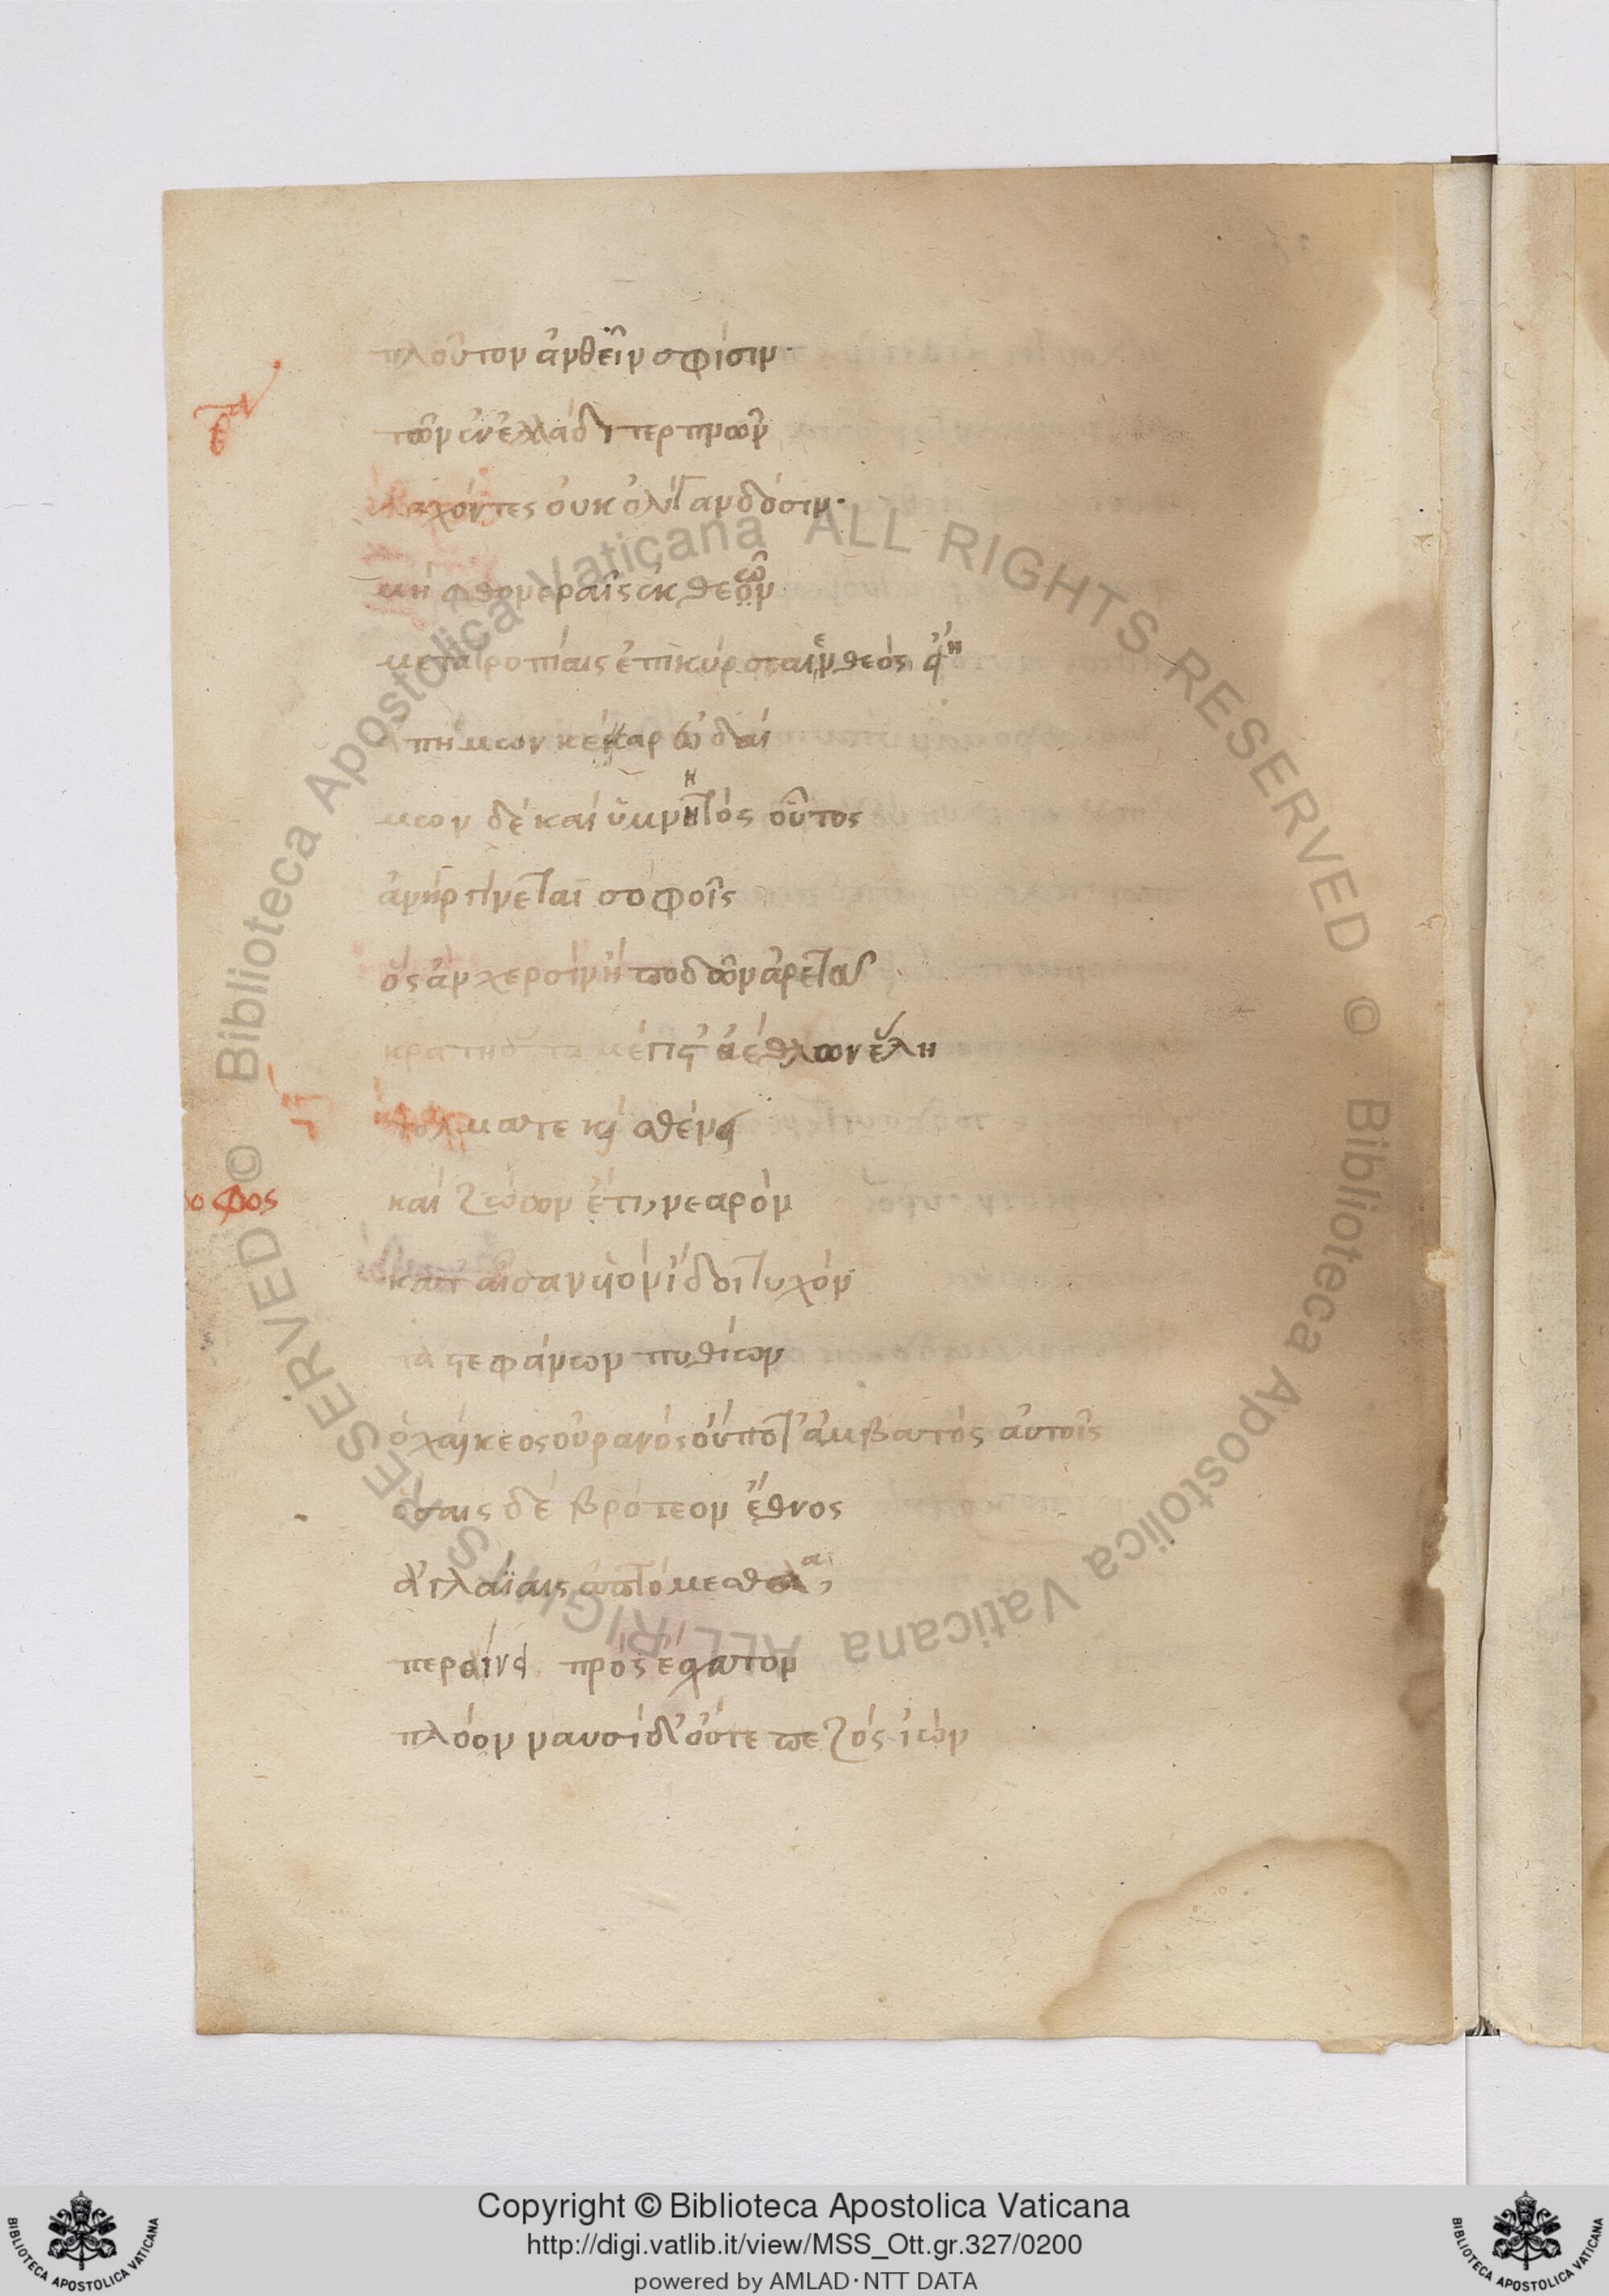 πλοῦτον ἀνθεῖν σφίσιν·
τῶν ἐν ἑλλάδι τερπνῶν
λαχόντες οὐκ ὀλίγαν δόσιν·
μὴ φθονεραῖς ἐκ θεῶν
μετατροπίαις ἐπικύρσαιεν θεὸς εἴη
ἀπήμων κέαρ εὐδαί
μων δὲ καὶ ὑμνητὸς οὗτος
ἀνὴρ γίνεται σοφοῖς
ὃς ἂν χερσὶν ἢ ποδῶν ἀρετᾶι
κρατήσ τὰ μέγιστ ἀέθλων ἕλη
τόλματε καὶ σθένει
σοφος
καὶ ζώων ἔτι, νεαρὸν
κατ αἶσαν υἱὸν ἴδοι τυχόν
τα στεφάνων πυθίων
ὁ χάλκεος οὐρανὸς οὔποτ' ἀμβατὸς αὐτοῖς
ὅσαις δὲ βρότεον ἔθνος
ἀγλαΐαις ἁπτόμεσθα,
περαίνει πρὸς ἔσχατον
πλόον ναυσὶ δ' οὔτε πεζὸς ἰὼν
Copyright © Biblioteca Apostolica Vaticana
http://digi.vatlib.it/view/MSS_Ott.gr.327/0200
powered by AMLAD·NTT DATA
BIBLIOTECA APOSTOLICA VATICANA
BIBLIOTECA APOSTOLICA VATICANA
© Biblioteca Apostolica Vaticana ALL RIGHTS RESERVED © Biblioteca Apostolica Vaticana ALL RIGHTS RESERVED